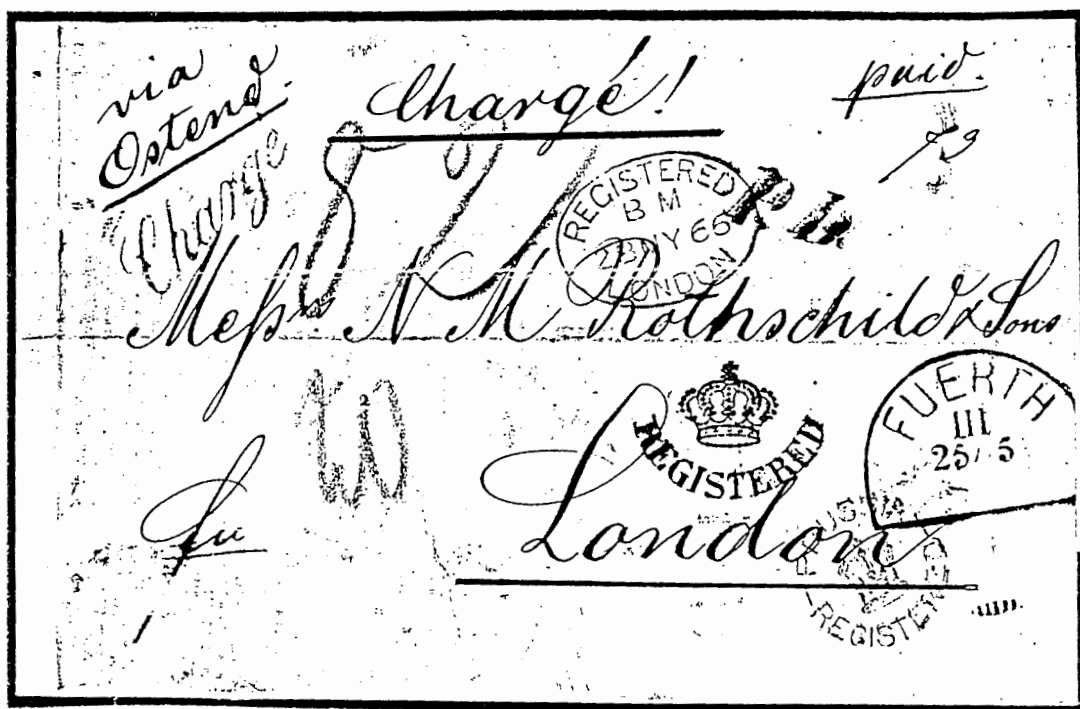 via
Ostend.
Chargé!
paid.
Charge
REGISTERED
B M
28 MY 66
LONDON
Mess. N M Rothschild & Sons
REGISTERED
FUERTH
III
25/5
London
REGISTERED